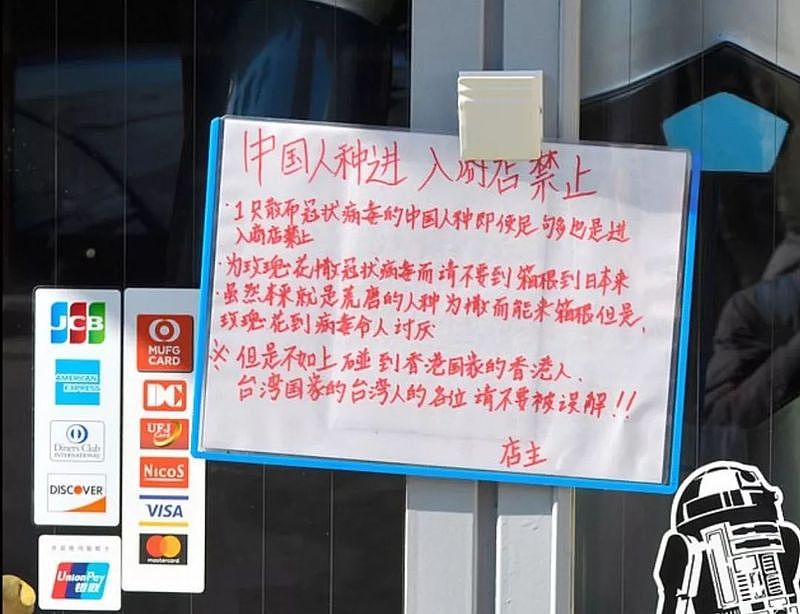 中国人种进 入商店禁止
・1只散布冠状病毒的中国人种即使足够多也是进
入商店禁止
・为玫瑰花撒冠状病毒而请不要到箱根到日本来
・虽然本来就是荒磨的人种为撒而能来箱根但是、
玫瑰花到病毒令人讨厌
※但是不如上碰到香港国家的香港人、
台湾国家的台湾人的各位请不要被误解!!
店主
JCB
AMERICAN
EXPRESS
Diners Club
INTERNATIONAL
DISCOVER
UnionPay
银联
MUFG
CARD
DC
UFJ
Card
NICOS
VISA
mastercard